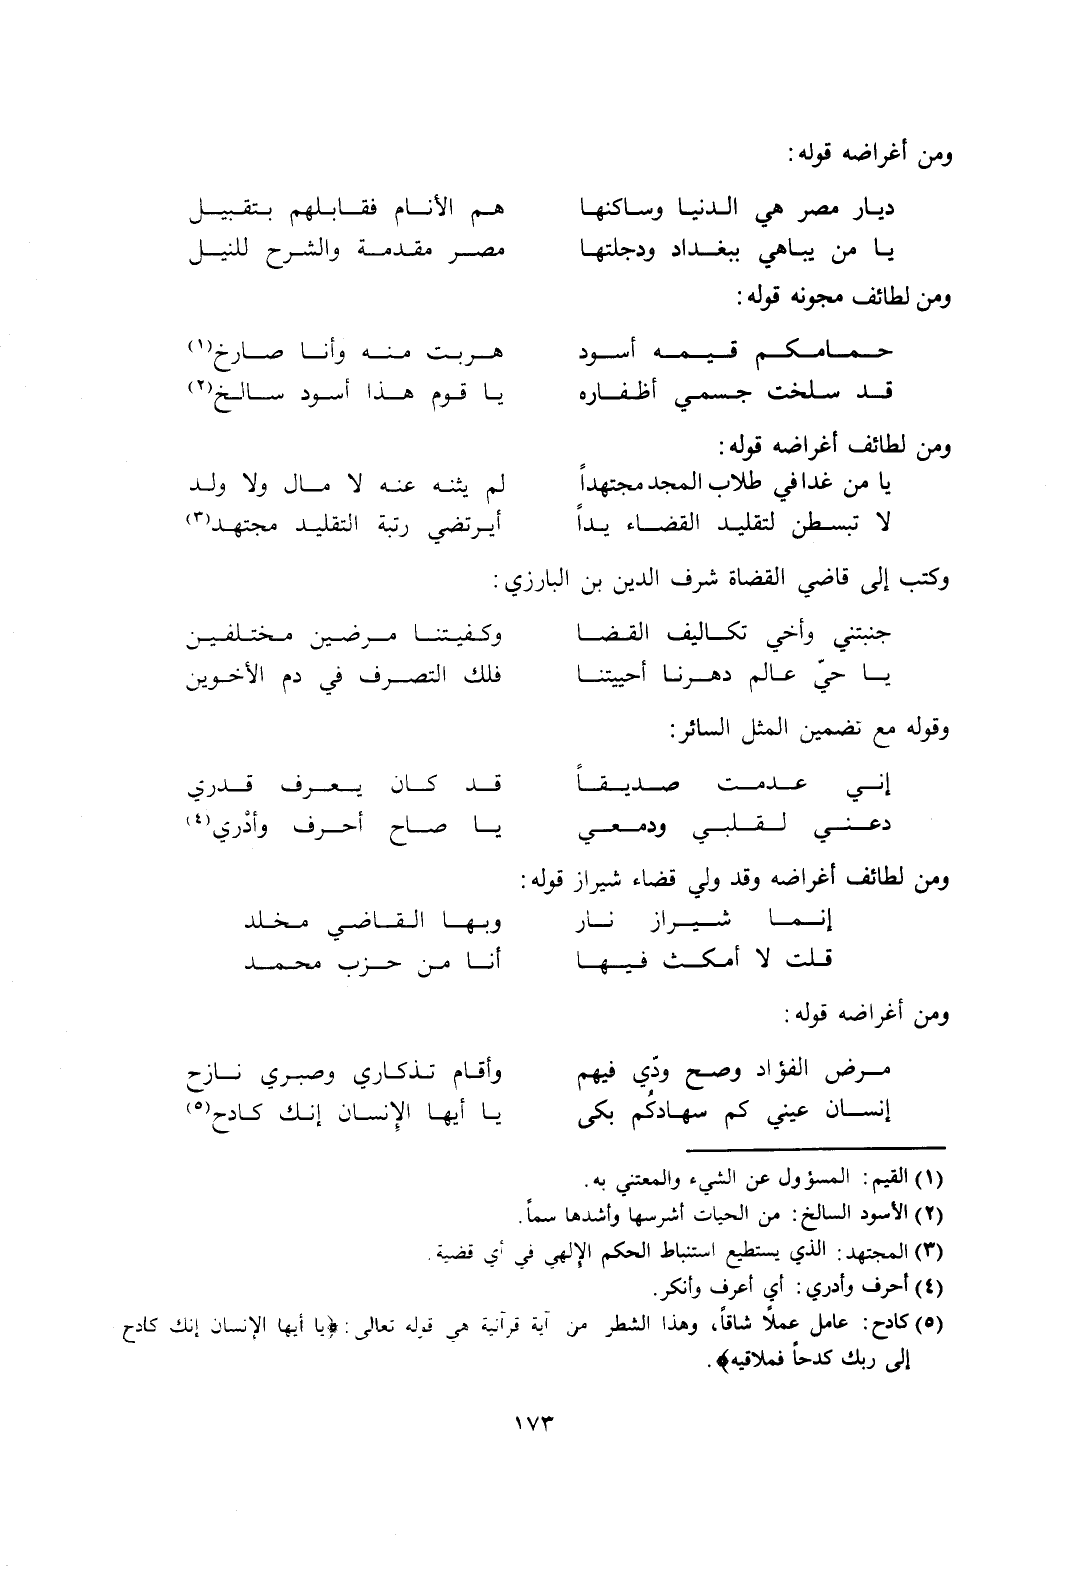 ومن أغراضه قوله:
ديار مصر هي الدنيا وساكنها هم الأنام فقابلهم بتقبيل
يا من يباهي ببغداد ودجلتها مصر مقدمة والشرح للنيل
ومن لطائف مجونه قوله:
حمامكم قيمه أسود هربت منه وأنا صارخ(١)
قد سلخت جسمي أظفاره يا قوم هذا أسود سالخ(٢)
ومن لطائف أغراضه قوله:
يا من غدا في طلاب المجد مجتهداً لم يثنه عنه لا مال ولا ولد
لا تبسطن لتقليد القضاء يداً أيرتضي رتبة التقليد مجتهد(٣)
وكتب إلى قاضي القضاة شرف الدين بن البارزي:
جنبتني وأخي تكاليف القضا وكفيتنا مرضين مختلفين
يا حيّ عالم دهرنا أحييتنا فلك التصرف في دم الأخوين
وقوله مع تضمين المثل السائر:
إني عدمت صديقاً قد كان يعرف قدري
دعني لقلبي ودمعي يا صاح أحرف وأذْري(٤)
ومن لطائف أغراضه وقد ولي قضاء شيراز قوله:
إنما شيراز نار وبها القاضي مخلد
قلت لا أمكث فيها أنا من حزب محمد
ومن أغراضه قوله:
مرض الفؤاد وصح ودّي فيهم وأقام تذكاري وصبري نازح
إنسان عيني كم سهادكُم بكى يا أيها الإنسان إنك كادح(٥)
(١) القيم: المسؤول عن الشيء والمعتني به.
(٢) الأسود السالخ: من الحيات أشرسها وأشدها سماً.
(٣) المجتهد: الذي يستطيع استنباط الحكم الإلهي في أي قضية.
(٤) أحرف وأدري: أي أعرف وأنكر.
(٥) كادح: عامل عملاً شاقاً، وهذا الشطر من آية قرآنية هي قوله تعالى: ﴿يا أيها الإنسان إنك كادح
إلى ربك كدحاً فملاقيه﴾.
١٧٣